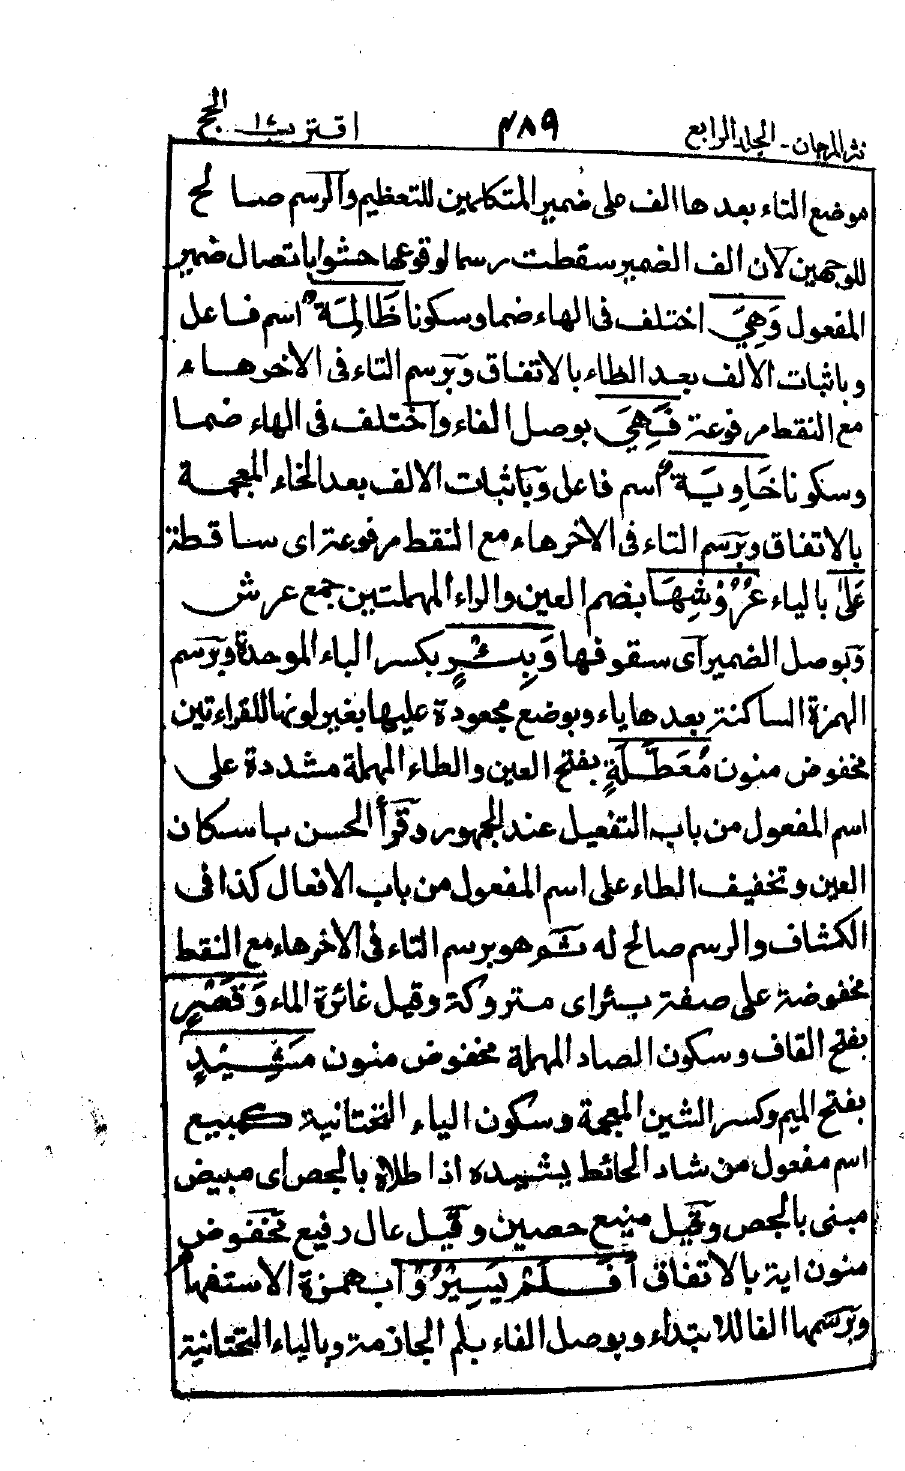 نثر المرجان - المجلد الرابع ۴۸۹ اقترب ۱۷ الحج
موضع التاء بعدها الف على ضمير المتكلمين للتعظيم والرسم صالح
للوجهين لان الف الضمير سقطت رسما لوقوعها حشوا باتصال ضمير
المفعول وَهِيَ اختلف فى الهاء ضما وسكونا ظَالِمَةٌ اسم فاعل
وباثبات الالف بعد الظاء بالاتفاق وبرسم التاء فى الاخر هاء
مع النقط مرفوعة فَهِيَ بوصل الفاء واختلف فى الهاء ضما
وسكونا خَاوِيَةٌ اسم فاعل وباثبات الالف بعد الخاء المعجمة
بالاتفاق وبرسم التاء فى الاخر هاء مع النقط مرفوعة اى ساقطة
عَلىٰ بالياء عُرُوْشِهَا بضم العين والراء المهملتين جمع عرش
وبوصل الضمير اى سقوفها وَبِئْرٍ بكسر الباء الموحدة وبرسم
الهمزة الساكنة بعدها ياء وبوضع مجعودة عليها بغير لونها للقراءتين
مخفوض منون مُعَطَّلَةٍ بفتح العين والطاء المهملة مشددة على
اسم المفعول من باب التفعيل عند الجمهور وقرأ الحسن باسكان
العين وتخفيف الطاء على اسم المفعول من باب الافعال كذا فى
الكشاف والرسم صالح له ثم هو برسم التاء فى الاخر هاء مع النقط
مخفوضة على صفة بئر اى متروكة وقيل غائرة الماء وَقَصْرٍ
بفتح القاف وسكون الصاد المهملة مخفوض منون مَشِيْدٍ
بفتح الميم وكسر الشين المعجمة وسكون الياء التحتانية كمبيع
اسم مفعول من شاد الحائط يشيده اذا طلاه بالجص اى مبيض
مبنى بالجص وقيل منيع حصين وقيل عال رفيع مخفوض
منون اية بالاتفاق اَفَلَمْ يَسِيْرُوْا بهمزة الاستفهام
وبرسمها الفا للابتداء وبوصل الفاء بلم الجازمة وبالياء التحتانية